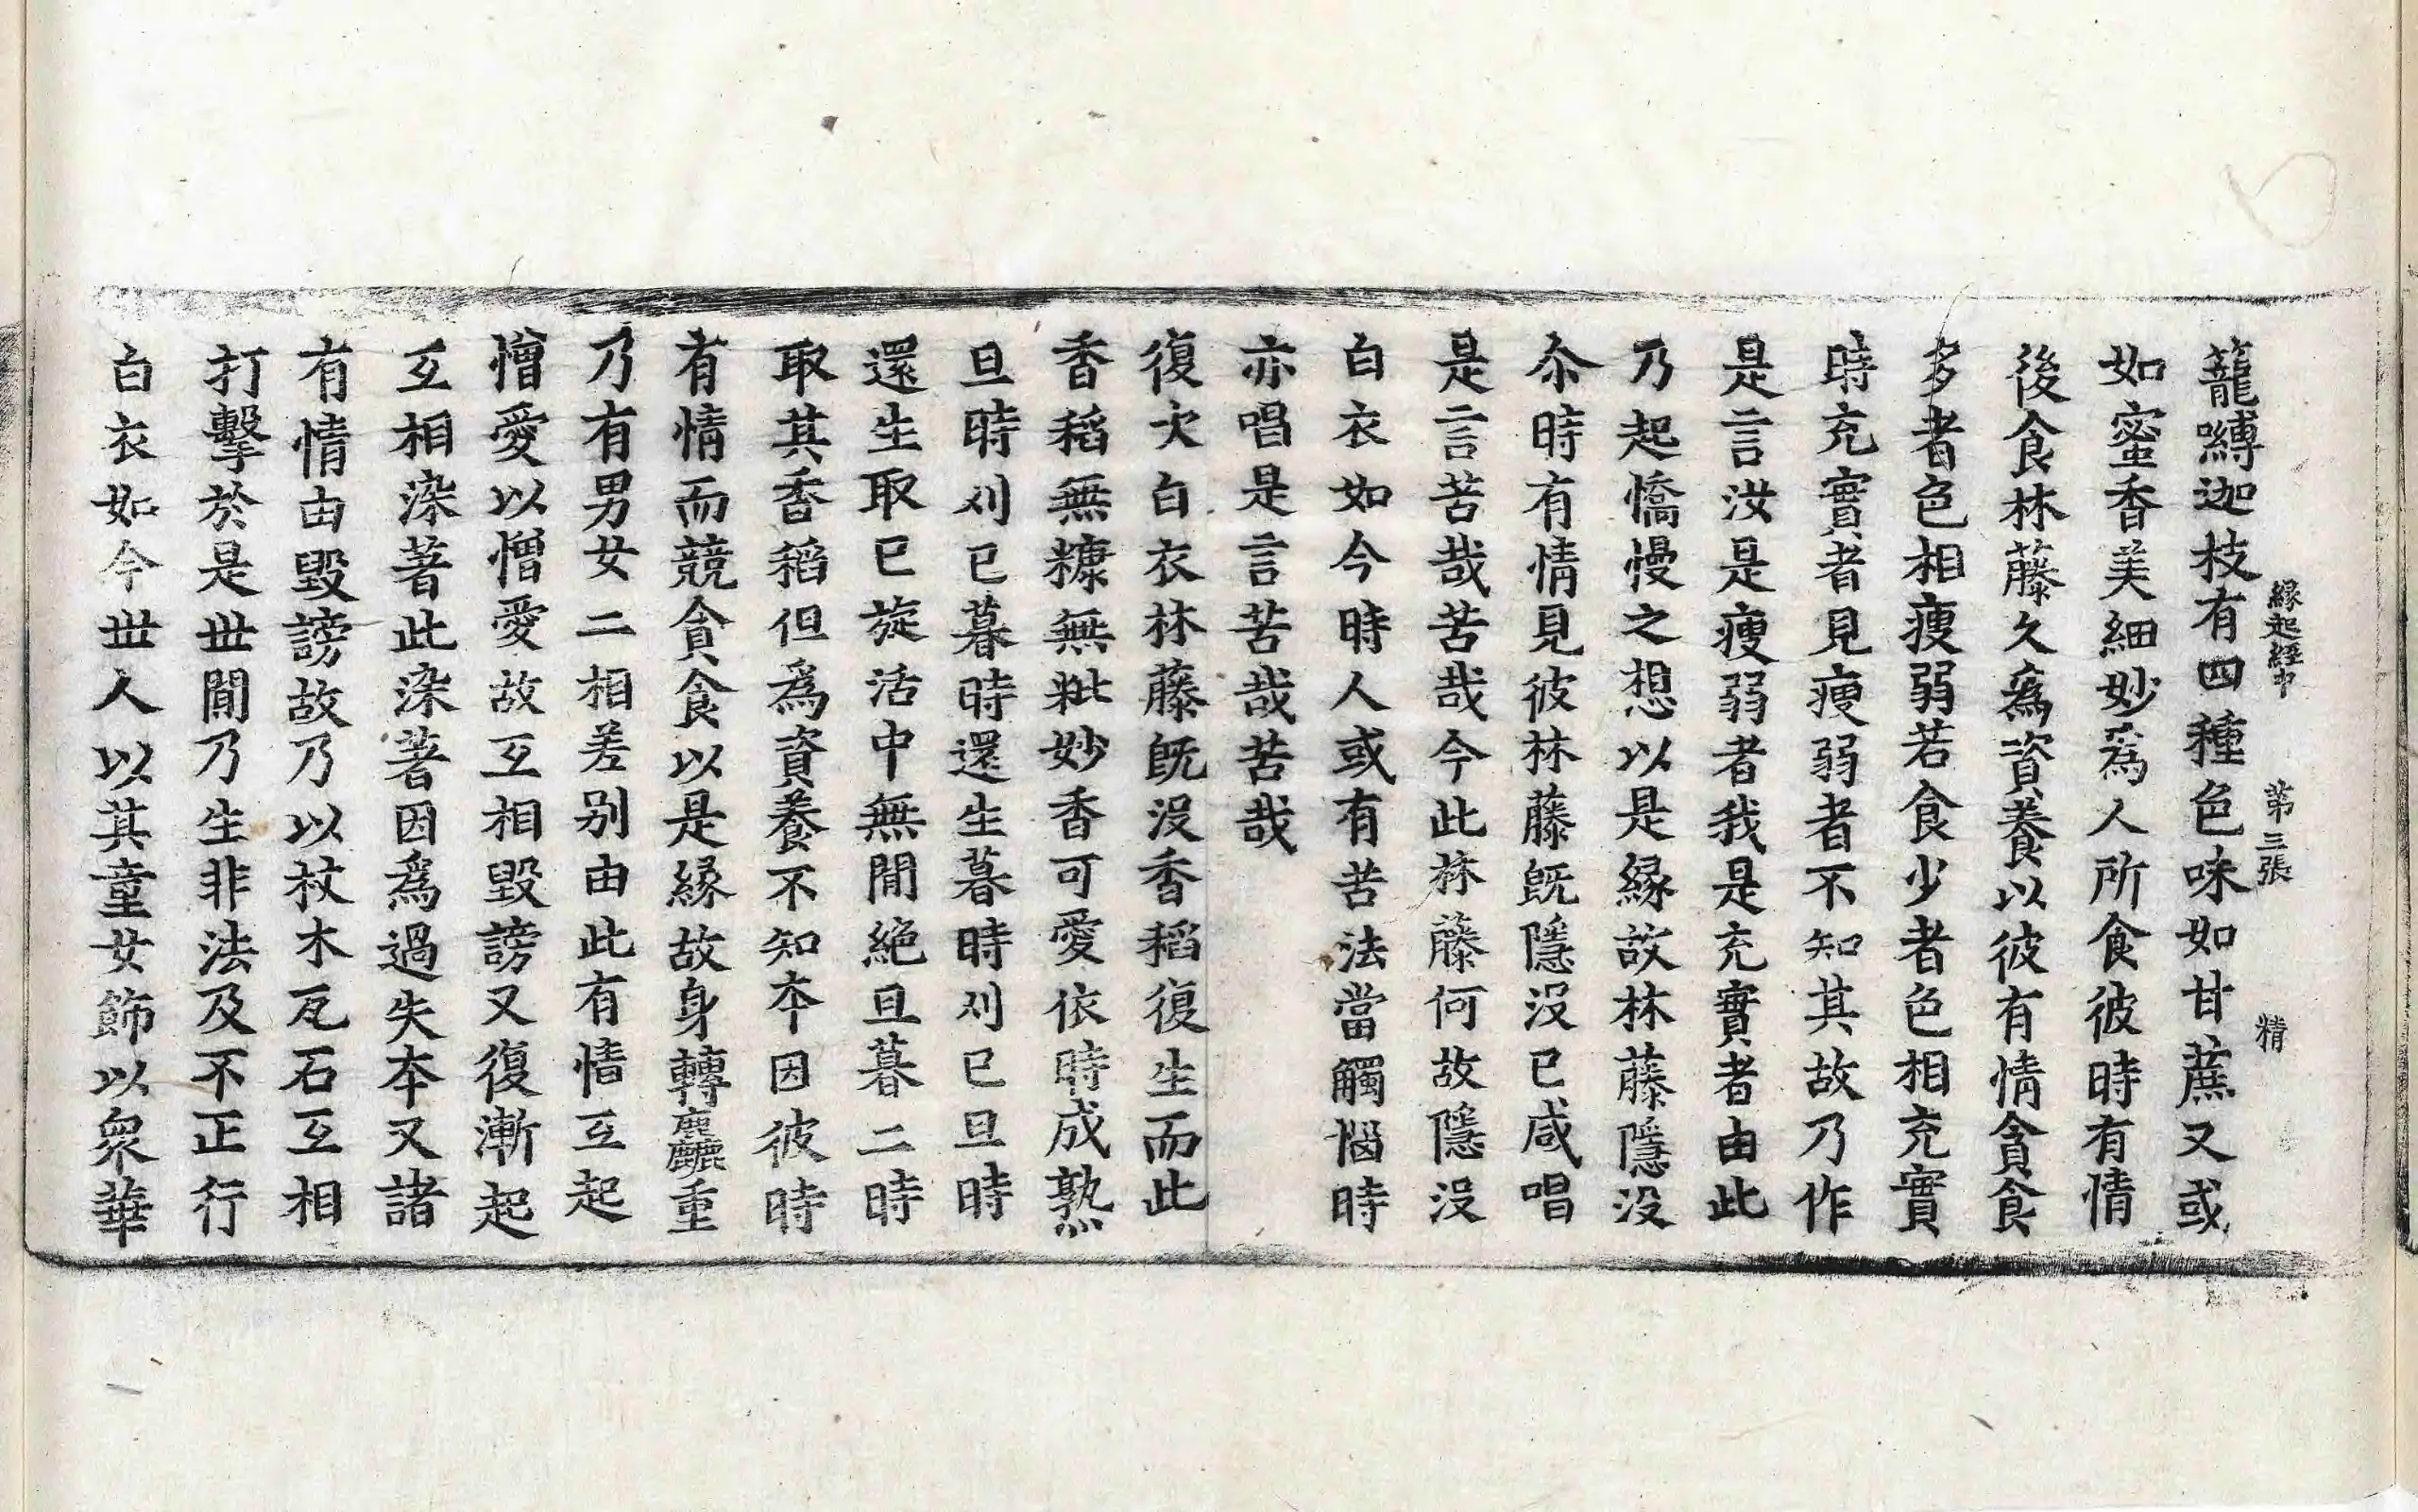 緣起經中 第三張 精
籠嚩迦枝有四種色味如甘蔗又或
如蜜香美細妙爲人所食彼時有情
後食林藤久爲資養以彼有情貪食
多者色相瘦弱若食少者色相充實
時充實者見瘦弱者不知其故乃作
是言汝是瘦弱者我是充實者由此
乃起憍慢之想以是緣故林藤隱没
尒時有情見彼林藤旣隱没已咸唱
是言苦哉苦哉今此林藤何故隱没
白衣如今時人或有苦法當觸惱時
亦唱是言苦哉苦哉
復次白衣林藤旣没香稻復生而此
香稻無糠無粃妙香可愛依時成熟
旦時刈已暮時還生暮時刈已旦時
還生取已旋活中無間絶旦暮二時
取其香稻但爲資養不知本因彼時
有情而競貪食以是緣故身轉麤重
乃有男女二相差别由此有情互起
憎愛以憎愛故互相毀謗又復漸起
互相染著此染著因爲過失本又諸
有情由毀謗故乃以杖木瓦石互相
打擊於是世間乃生非法及不正行
白衣如今世人以其童女飾以衆華